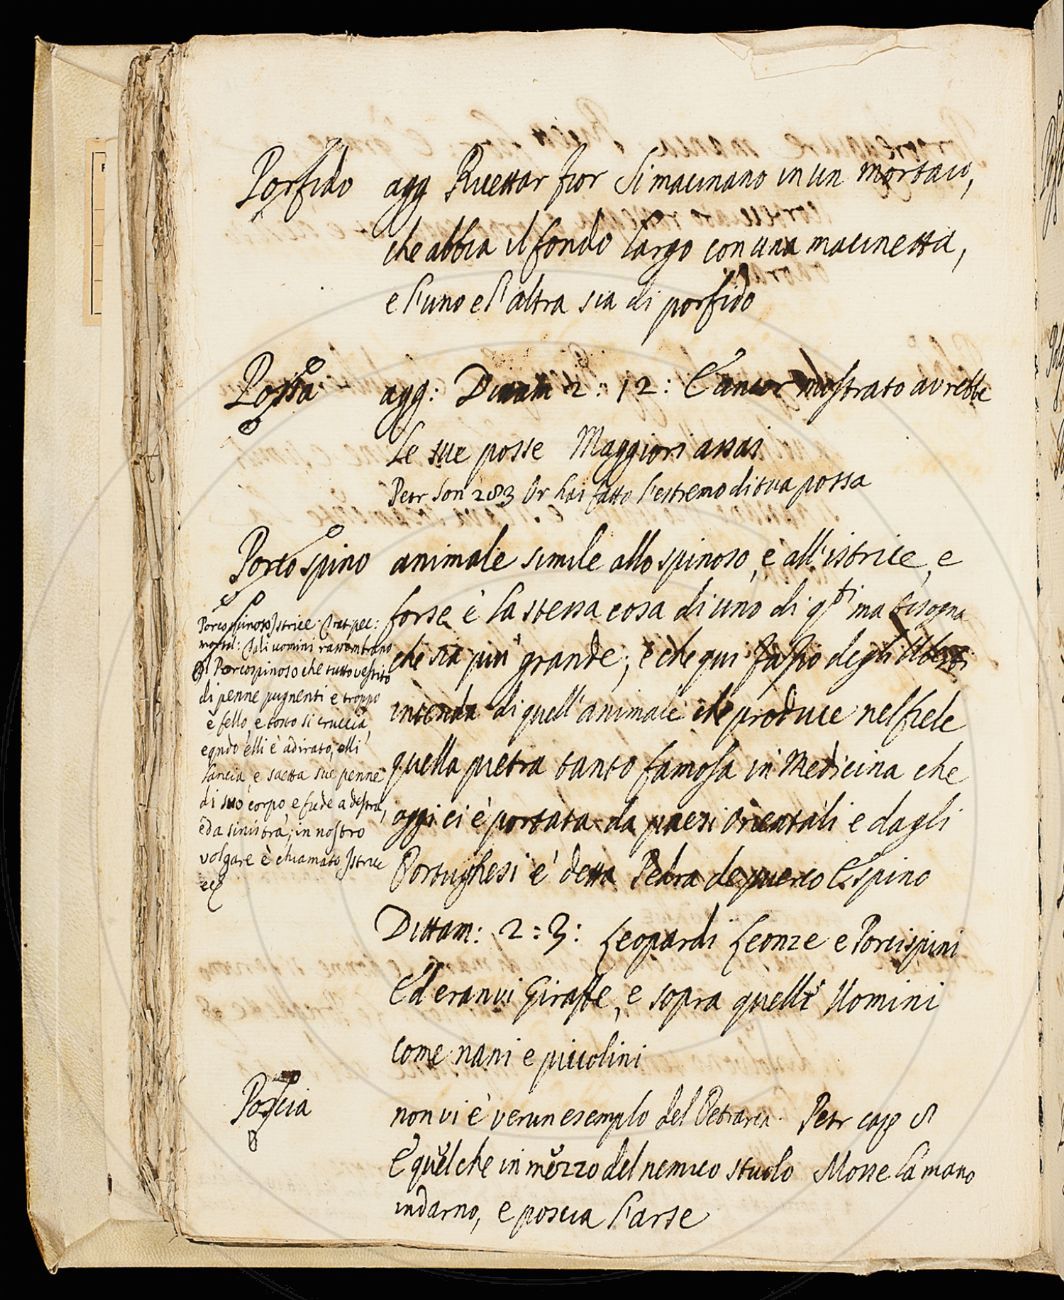 Porfido agg Ricettar fior Si macinano in un mortaio,
che abbia il fondo largo con una macinetta,
e l'uno e l'altra sia di porfido
Possa agg: Dittam 2: 12: E ancor mostrato avrebbe
Le sue posse Maggiori assai
Petr Son 283 Or hai fatto l'estremo di tua possa
Porco spino animale simile allo spinoso, e all'istrice, e
forse è la stessa cosa di uno di qti ma bisogna
che sia piu grande, e che qui Fazio degli Uberti
intenda di quell'animale che produce nel fiele
quella pietra tanto famosa in Medicina che
oggi ci è portata da paesi orientali e dagli
Portughesi e' detta Pedra de puerco Espino
Dittam: 2: 3: Leopardi Leonze e Porcispini
Ed eranvi Giraffe, e sopra quelli Uomini
come nani e piccolini
Porcospinoso Istrice. Trat pec:
mortal: Gli uomini rassembrano
il Porcospinoso che tutto vestito
di penne pugnenti e troppo
è fello, e tosto si cruccia,
e qndo elli è adirato, elli
lancia, e saetta sue penne
di suo corpo, e fiede a destra,
ed a sinistra; in nostro
volgare è chiamato Istrice
ec
Poscia non vi è verun esemplo del Petrarca. Petr cap 8
E quel che in mezzo del nemico stuolo Mosse la mano
indarno, e poscia l'arse